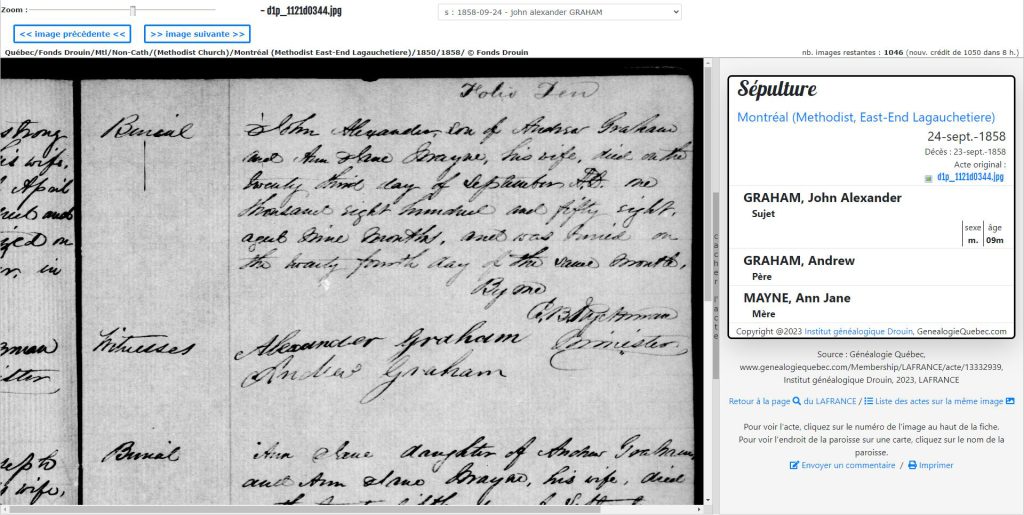 Zoom :
– d1p_1121d0344.jpg
s : 1858-09-24 - john alexander GRAHAM
<< image précédente <<
>> image suivante >>
Québec/Fonds Drouin/Mtl/Non-Cath/(Methodist Church)/Montréal (Methodist East-End Lagauchetiere)/1850/1858/ © Fonds Drouin
nb. images restantes : 1046 (nouv. crédit de 1050 dans 8 h.)
Folio Ten
Burial
John Alexander, son of Andrew Graham
and Ann Jane Mayne, his wife, died on the
twenty third day of September A.D. one
thousand eight hundred and fifty eight,
aged nine months, and was buried on
the twenty fourth day of the same month,
By me
Minister
Witnesses
Alexander Graham
Andrew Graham
Burial
Ann Jane daughter of Andrew Graham,
and Ann Jane Mayne, his wife, died
his wife,
April
and
on
in
his wife,
cacher l'acte
Sépulture
Montréal (Methodist, East-End Lagauchetiere)
24-sept.-1858
Décès : 23-sept.-1858
Acte original :
d1p_1121d0344.jpg
GRAHAM, John Alexander
Sujet
sexe âge
m. 09m
GRAHAM, Andrew
Père
MAYNE, Ann Jane
Mère
Copyright @2023 Institut généalogique Drouin, GenealogieQuebec.com
Source : Généalogie Québec,
www.genealogiequebec.com/Membership/LAFRANCE/acte/13332939,
Institut généalogique Drouin, 2023, LAFRANCE
Retour à la page du LAFRANCE / Liste des actes sur la même image
Pour voir l'acte, cliquez sur le numéro de l'image au haut de la fiche.
Pour voir l'endroit de la paroisse sur une carte, cliquez sur le nom de la
paroisse.
Envoyer un commentaire / Imprimer